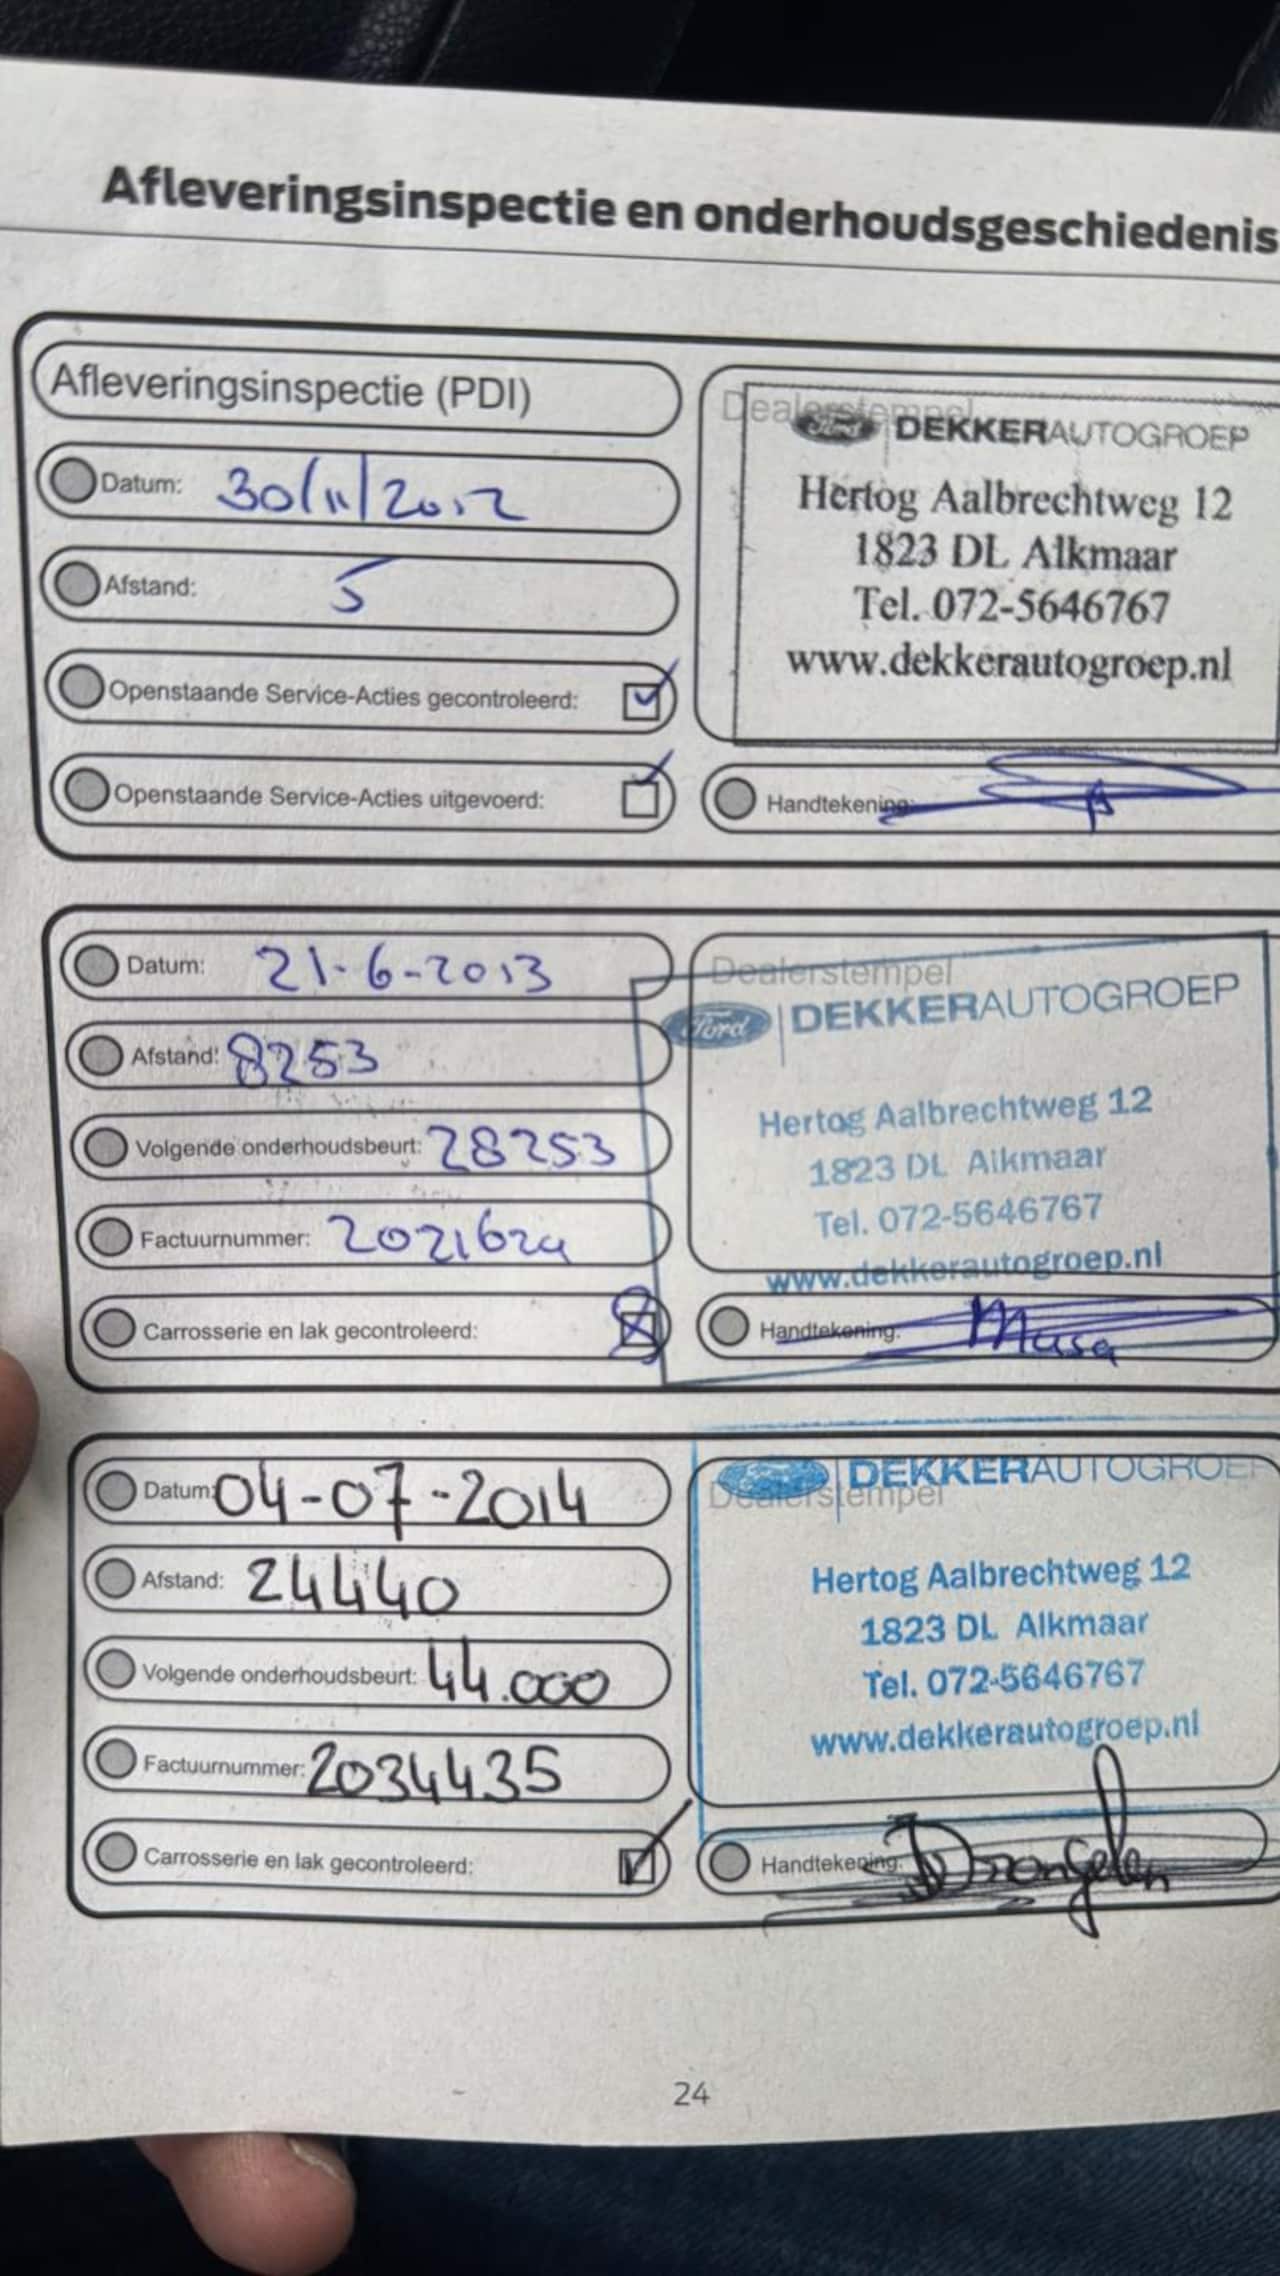 Afleveringsinspectie en onderhoudsgeschiedenis
Afleveringsinspectie (PDI)
Datum: 30/11/2012
Afstand: 5
Openstaande Service-Acties gecontroleerd:
Openstaande Service-Acties uitgevoerd:
Dealerstempel
Ford DEKKERAUTOGROEP
Hertog Aalbrechtweg 12
1823 DL Alkmaar
Tel. 072-5646767
www.dekkerautogroep.nl
Handtekening:
Datum: 21-6-2013
Afstand: 8253
Volgende onderhoudsbeurt: 28253
Factuurnummer: 2021624
Carrosserie en lak gecontroleerd:
Dealerstempel
Ford DEKKERAUTOGROEP
Hertog Aalbrechtweg 12
1823 DL Alkmaar
Tel. 072-5646767
www.dekkerautogroep.nl
Handtekening: Musa
Datum: 04-07-2014
Afstand: 24440
Volgende onderhoudsbeurt: 44.000
Factuurnummer: 2034435
Carrosserie en lak gecontroleerd:
Dealerstempel
DEKKERAUTOGROEP
Hertog Aalbrechtweg 12
1823 DL Alkmaar
Tel. 072-5646767
www.dekkerautogroep.nl
Handtekening:
24